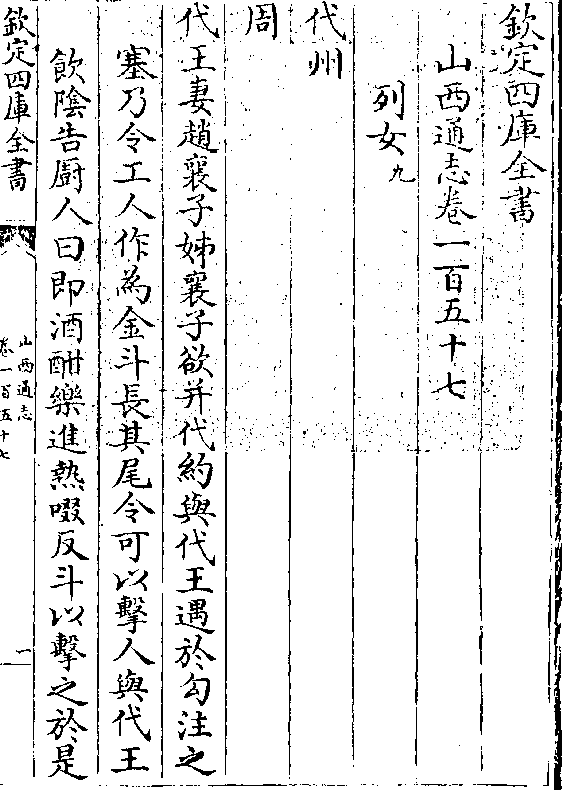 欽定四庫全書
山西通志卷一百五十七
列女九
代州
周
代王妻趙襄子姊襄子欲并代約與代王遇於勾注之
塞乃令工人作為金斗長其尾令可以擊人與代王
飲陰告厨人曰即酒酣樂進熱啜反斗以擊之於是
欽定四庫全書
山西通志
卷一百五十七
一